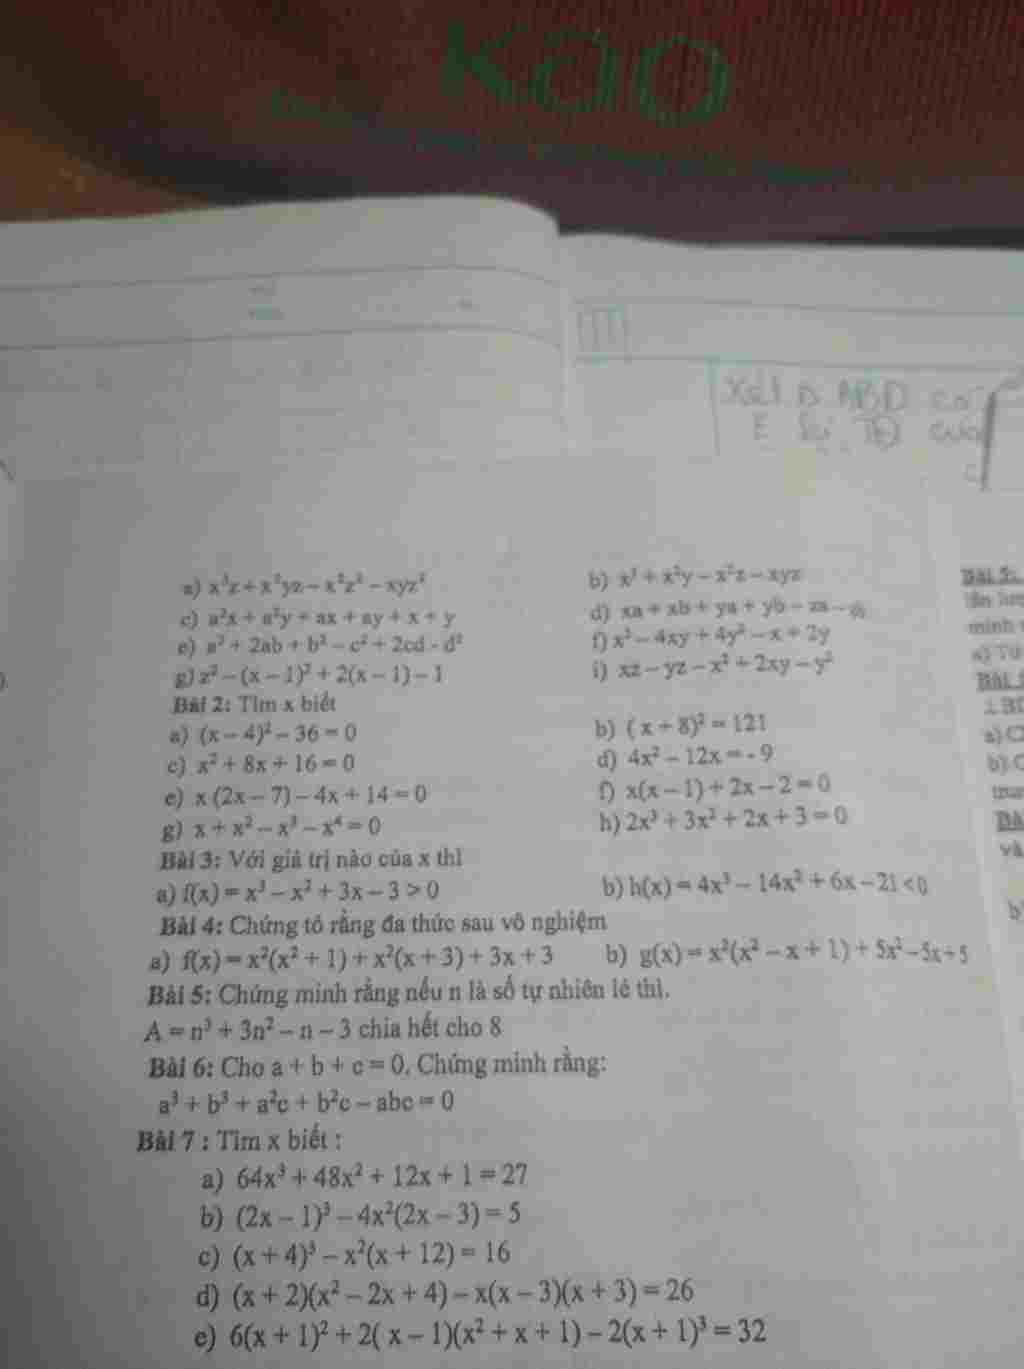 Kao
Xét Δ ABD có
E là TĐ của
a) x³z + x²yz – x²z² – xyz²
b) x³ + x²y – x²z – xyz
c) a²x + a²y + ax + ay + x + y
d) xa + xb + ya + yb – za –
e) a² + 2ab + b² – c² + 2cd - d²
f) x² – 4xy + 4y² – x + 2y
g) z² – (x – 1)² + 2(x – 1) – 1
i) xz – yz – x² + 2xy – y²
Bài 2: Tìm x biết
a) (x – 4)² – 36 = 0
b) ( x + 8)² = 121
c) x² + 8x + 16 = 0
d) 4x² – 12x = - 9
e) x (2x – 7) – 4x + 14 = 0
f) x(x – 1) + 2x – 2 = 0
g) x + x² – x³ – x⁴ = 0
h) 2x³ + 3x² + 2x + 3 = 0
Bài 3: Với giá trị nào của x thì
a) f(x) = x³ – x² + 3x – 3 > 0
b) h(x) = 4x³ – 14x² + 6x – 21 < 0
Bài 4: Chứng tỏ rằng đa thức sau vô nghiệm
a) f(x) = x²(x² + 1) + x²(x + 3) + 3x + 3
b) g(x) = x²(x² – x + 1) + 5x² – 5x + 5
Bài 5: Chứng minh rằng nếu n là số tự nhiên lẻ thì.
A = n³ + 3n² – n – 3 chia hết cho 8
Bài 6: Cho a + b + c = 0. Chứng minh rằng:
a³ + b³ + a²c + b²c – abc = 0
Bài 7 : Tìm x biết :
a) 64x³ + 48x² + 12x + 1 = 27
b) (2x – 1)³ – 4x²(2x – 3) = 5
c) (x + 4)³ – x²(x + 12) = 16
d) (x + 2)(x² – 2x + 4) – x(x – 3)(x + 3) = 26
e) 6(x + 1)² + 2( x – 1)(x² + x + 1) – 2(x + 1)³ = 32
Bài 5:
minh